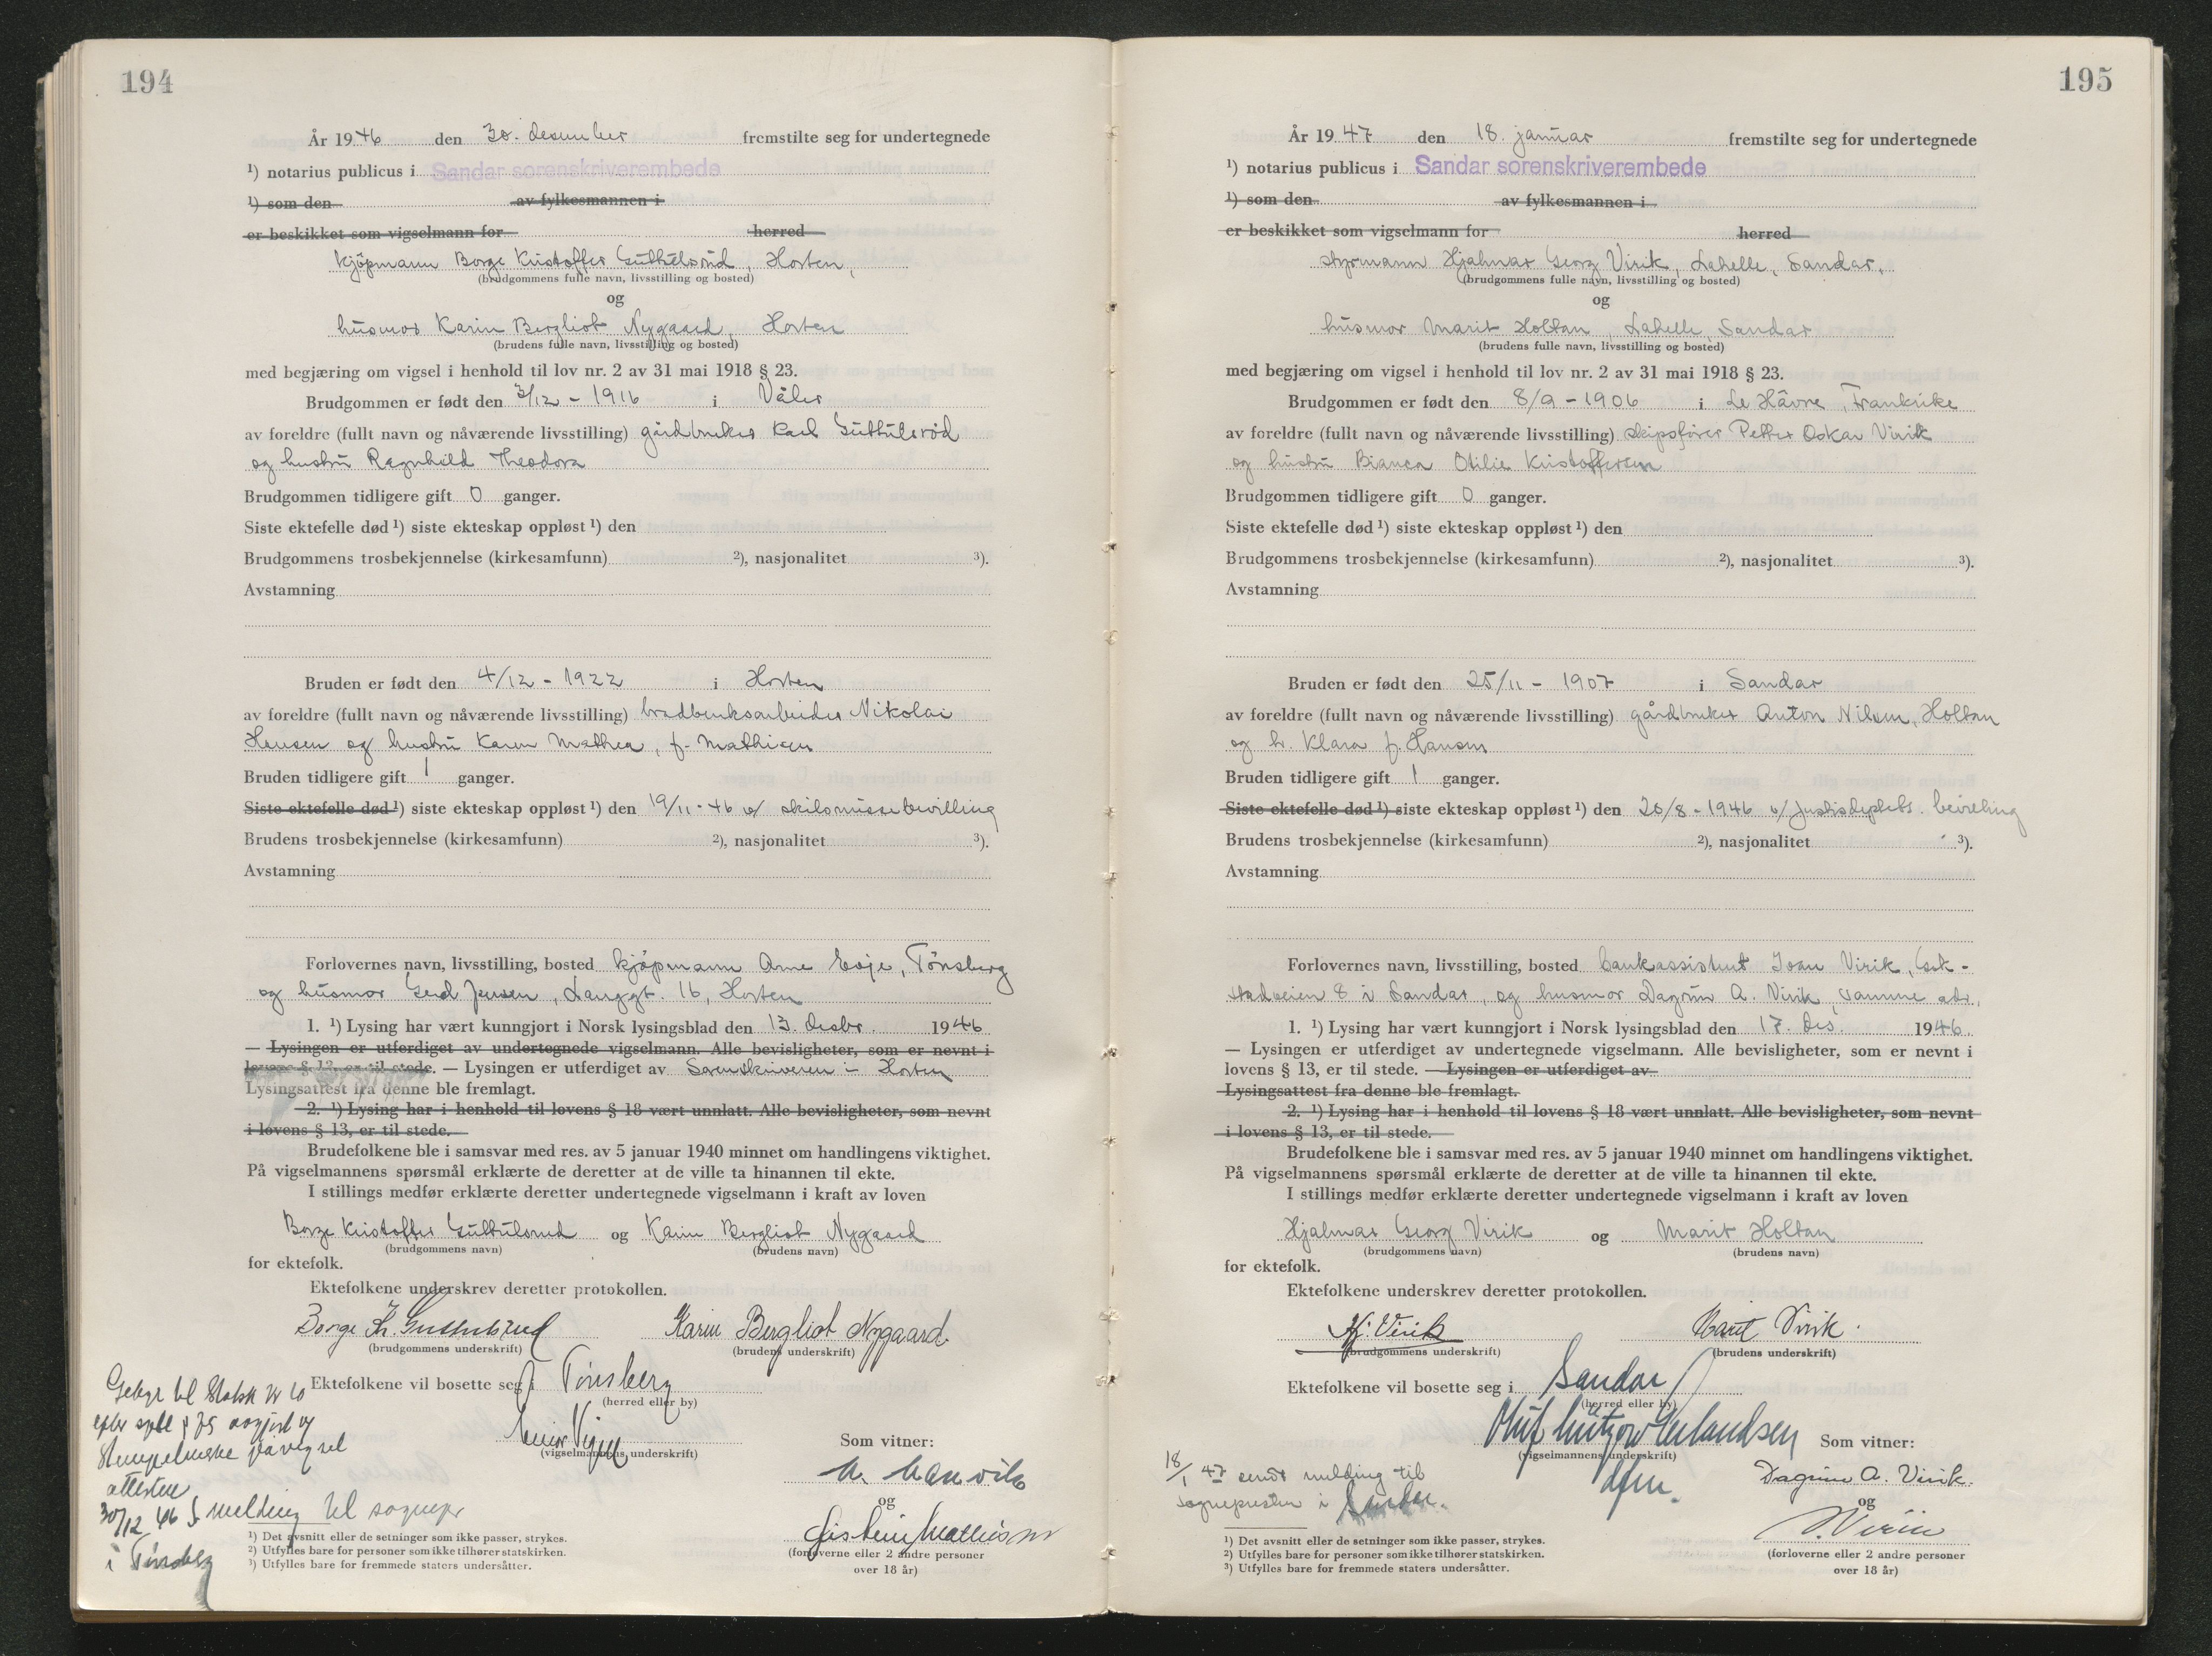 194
År 1946 den 30. desember fremstilte seg for undertegnede
¹) notarius publicus i Sandar sorenskriverembede
¹) som den av fylkesmannen i
er beskikket som vigselmann for herred
kjøpmann Borge Kristoffer Guttulsrud, Horten,
(brudgommens fulle navn, livsstilling og bosted)
og
husmor Karin Bergliot Nygaard, Horten
(brudens fulle navn, livsstilling og bosted)
med begjæring om vigsel i henhold til lov nr. 2 av 31 mai 1918 § 23.
Brudgommen er født den 3/12 - 1916 i Våler
av foreldre (fullt navn og nåværende livsstilling) gårdbruker Karl Guttulsrød
og hustru Ragnhild Theodora
Brudgommen tidligere gift 0 ganger.
Siste ektefelle død ¹) siste ekteskap oppløst ¹) den
Brudgommens trosbekjennelse (kirkesamfunn) ²), nasjonalitet ³).
Avstamning
Bruden er født den 4/12 - 1922 i Horten
av foreldre (fullt navn og nåværende livsstilling) Nikolai
Hansen og hustru Karen Mathea, f. Mathisen
Bruden tidligere gift 1 ganger.
Siste ektefelle død ¹) siste ekteskap oppløst ¹) den 19/11 - 46 v/ skilsmissebevilling
Brudens trosbekjennelse (kirkesamfunn) ²), nasjonalitet ³).
Avstamning
Forlovernes navn, livsstilling, bosted kjøpmann Arne Evje, Tønsberg
og husmor Gerd Jensen, Langgt. 16, Horten
1. ¹) Lysing har vært kunngjort i Norsk lysingsblad den 13. desbr. 1946
— Lysingen er utferdiget av undertegnede vigselmann. Alle bevisligheter, som er nevnt i
lovens § 13, er til stede. — Lysingen er utferdiget av Sorenskriveren i Horten
Lysingsattest fra denne ble fremlagt.
2. ¹) Lysing har i henhold til lovens § 18 vært unnlatt. Alle bevisligheter, som nevnt
i lovens § 13, er til stede.
Brudefolkene ble i samsvar med res. av 5 januar 1940 minnet om handlingens viktighet.
På vigselmannens spørsmål erklærte de deretter at de ville ta hinannen til ekte.
I stillings medfør erklærte deretter undertegnede vigselmann i kraft av loven
Borge Kristoffer Guttulsrud og Karin Bergliot Nygaard
(brudgommens navn) (brudens navn)
for ektefolk.
Ektefolkene underskrev deretter protokollen.
Borge Kr. Guttulsrud Karin Bergliot Nygaard
(brudgommens underskrift) (brudens underskrift)
Ektefolkene vil bosette seg i Tønsberg
(herred eller by)
(vigselmannens underskrift)
Som vitner:
og
(forloverne eller 2 andre personer
over 18 år)
Gebyr til Statsk kr 10
stempelmerke på vigsel
attesten
30/12 46 melding til sognepr
i Tønsberg
¹) Det avsnitt eller de setninger som ikke passer, strykes.
²) Utfylles bare for personer som ikke tilhører statskirken.
³) Utfylles bare for fremmede staters undersåtter.
195
År 1947 den 18. januar fremstilte seg for undertegnede
¹) notarius publicus i Sandar sorenskriverembede
¹) som den av fylkesmannen i
er beskikket som vigselmann for herred
styrmann Hjalmar Georg Virik, Lahelle, Sandar,
(brudgommens fulle navn, livsstilling og bosted)
og
husmor Marit Holtan, Lahelle, Sandar
(brudens fulle navn, livsstilling og bosted)
med begjæring om vigsel i henhold til lov nr. 2 av 31 mai 1918 § 23.
Brudgommen er født den 8/9 - 1906 i Le Hâvre, Frankrike
av foreldre (fullt navn og nåværende livsstilling) skipsfører Petter Oskar Virik
og hustru Bianca Otilie Kristoffersen
Brudgommen tidligere gift 0 ganger.
Siste ektefelle død ¹) siste ekteskap oppløst ¹) den
Brudgommens trosbekjennelse (kirkesamfunn) ²), nasjonalitet ³).
Avstamning
Bruden er født den 25/11 - 1907 i Sandar
av foreldre (fullt navn og nåværende livsstilling) gårdbruker Anton Nilsen Holtan
og h. Klara f. Hansen
Bruden tidligere gift 1 ganger.
Siste ektefelle død ¹) siste ekteskap oppløst ¹) den 26/8 - 1946 v/ bevilling
Brudens trosbekjennelse (kirkesamfunn) ²), nasjonalitet ³).
Avstamning
Forlovernes navn, livsstilling, bosted bankassistent Ivan Virik,
8 i Sandar, og husmor Dagrun A. Virik, samme adr.
1. ¹) Lysing har vært kunngjort i Norsk lysingsblad den 17. des. 1946.
— Lysingen er utferdiget av undertegnede vigselmann. Alle bevisligheter, som er nevnt i
lovens § 13, er til stede. — Lysingen er utferdiget av
Lysingsattest fra denne ble fremlagt.
2. ¹) Lysing har i henhold til lovens § 18 vært unnlatt. Alle bevisligheter, som nevnt
i lovens § 13, er til stede.
Brudefolkene ble i samsvar med res. av 5 januar 1940 minnet om handlingens viktighet.
På vigselmannens spørsmål erklærte de deretter at de ville ta hinannen til ekte.
I stillings medfør erklærte deretter undertegnede vigselmann i kraft av loven
Hjalmar Georg Virik og Marit Holtan
(brudgommens navn) (brudens navn)
for ektefolk.
Ektefolkene underskrev deretter protokollen.
Hj. Virik Marit Virik.
(brudgommens underskrift) (brudens underskrift)
Ektefolkene vil bosette seg i Sandar
(herred eller by)
Oluf Lützow Erlandsen
(vigselmannens underskrift)
dfm.
Som vitner:
Dagrun A. Virik.
og
I. Virik
(forloverne eller 2 andre personer
over 18 år)
18/1 47 sendt melding til
sognepresten i Sandar.
¹) Det avsnitt eller de setninger som ikke passer, strykes.
²) Utfylles bare for personer som ikke tilhører statskirken.
³) Utfylles bare for fremmede staters undersåtter.